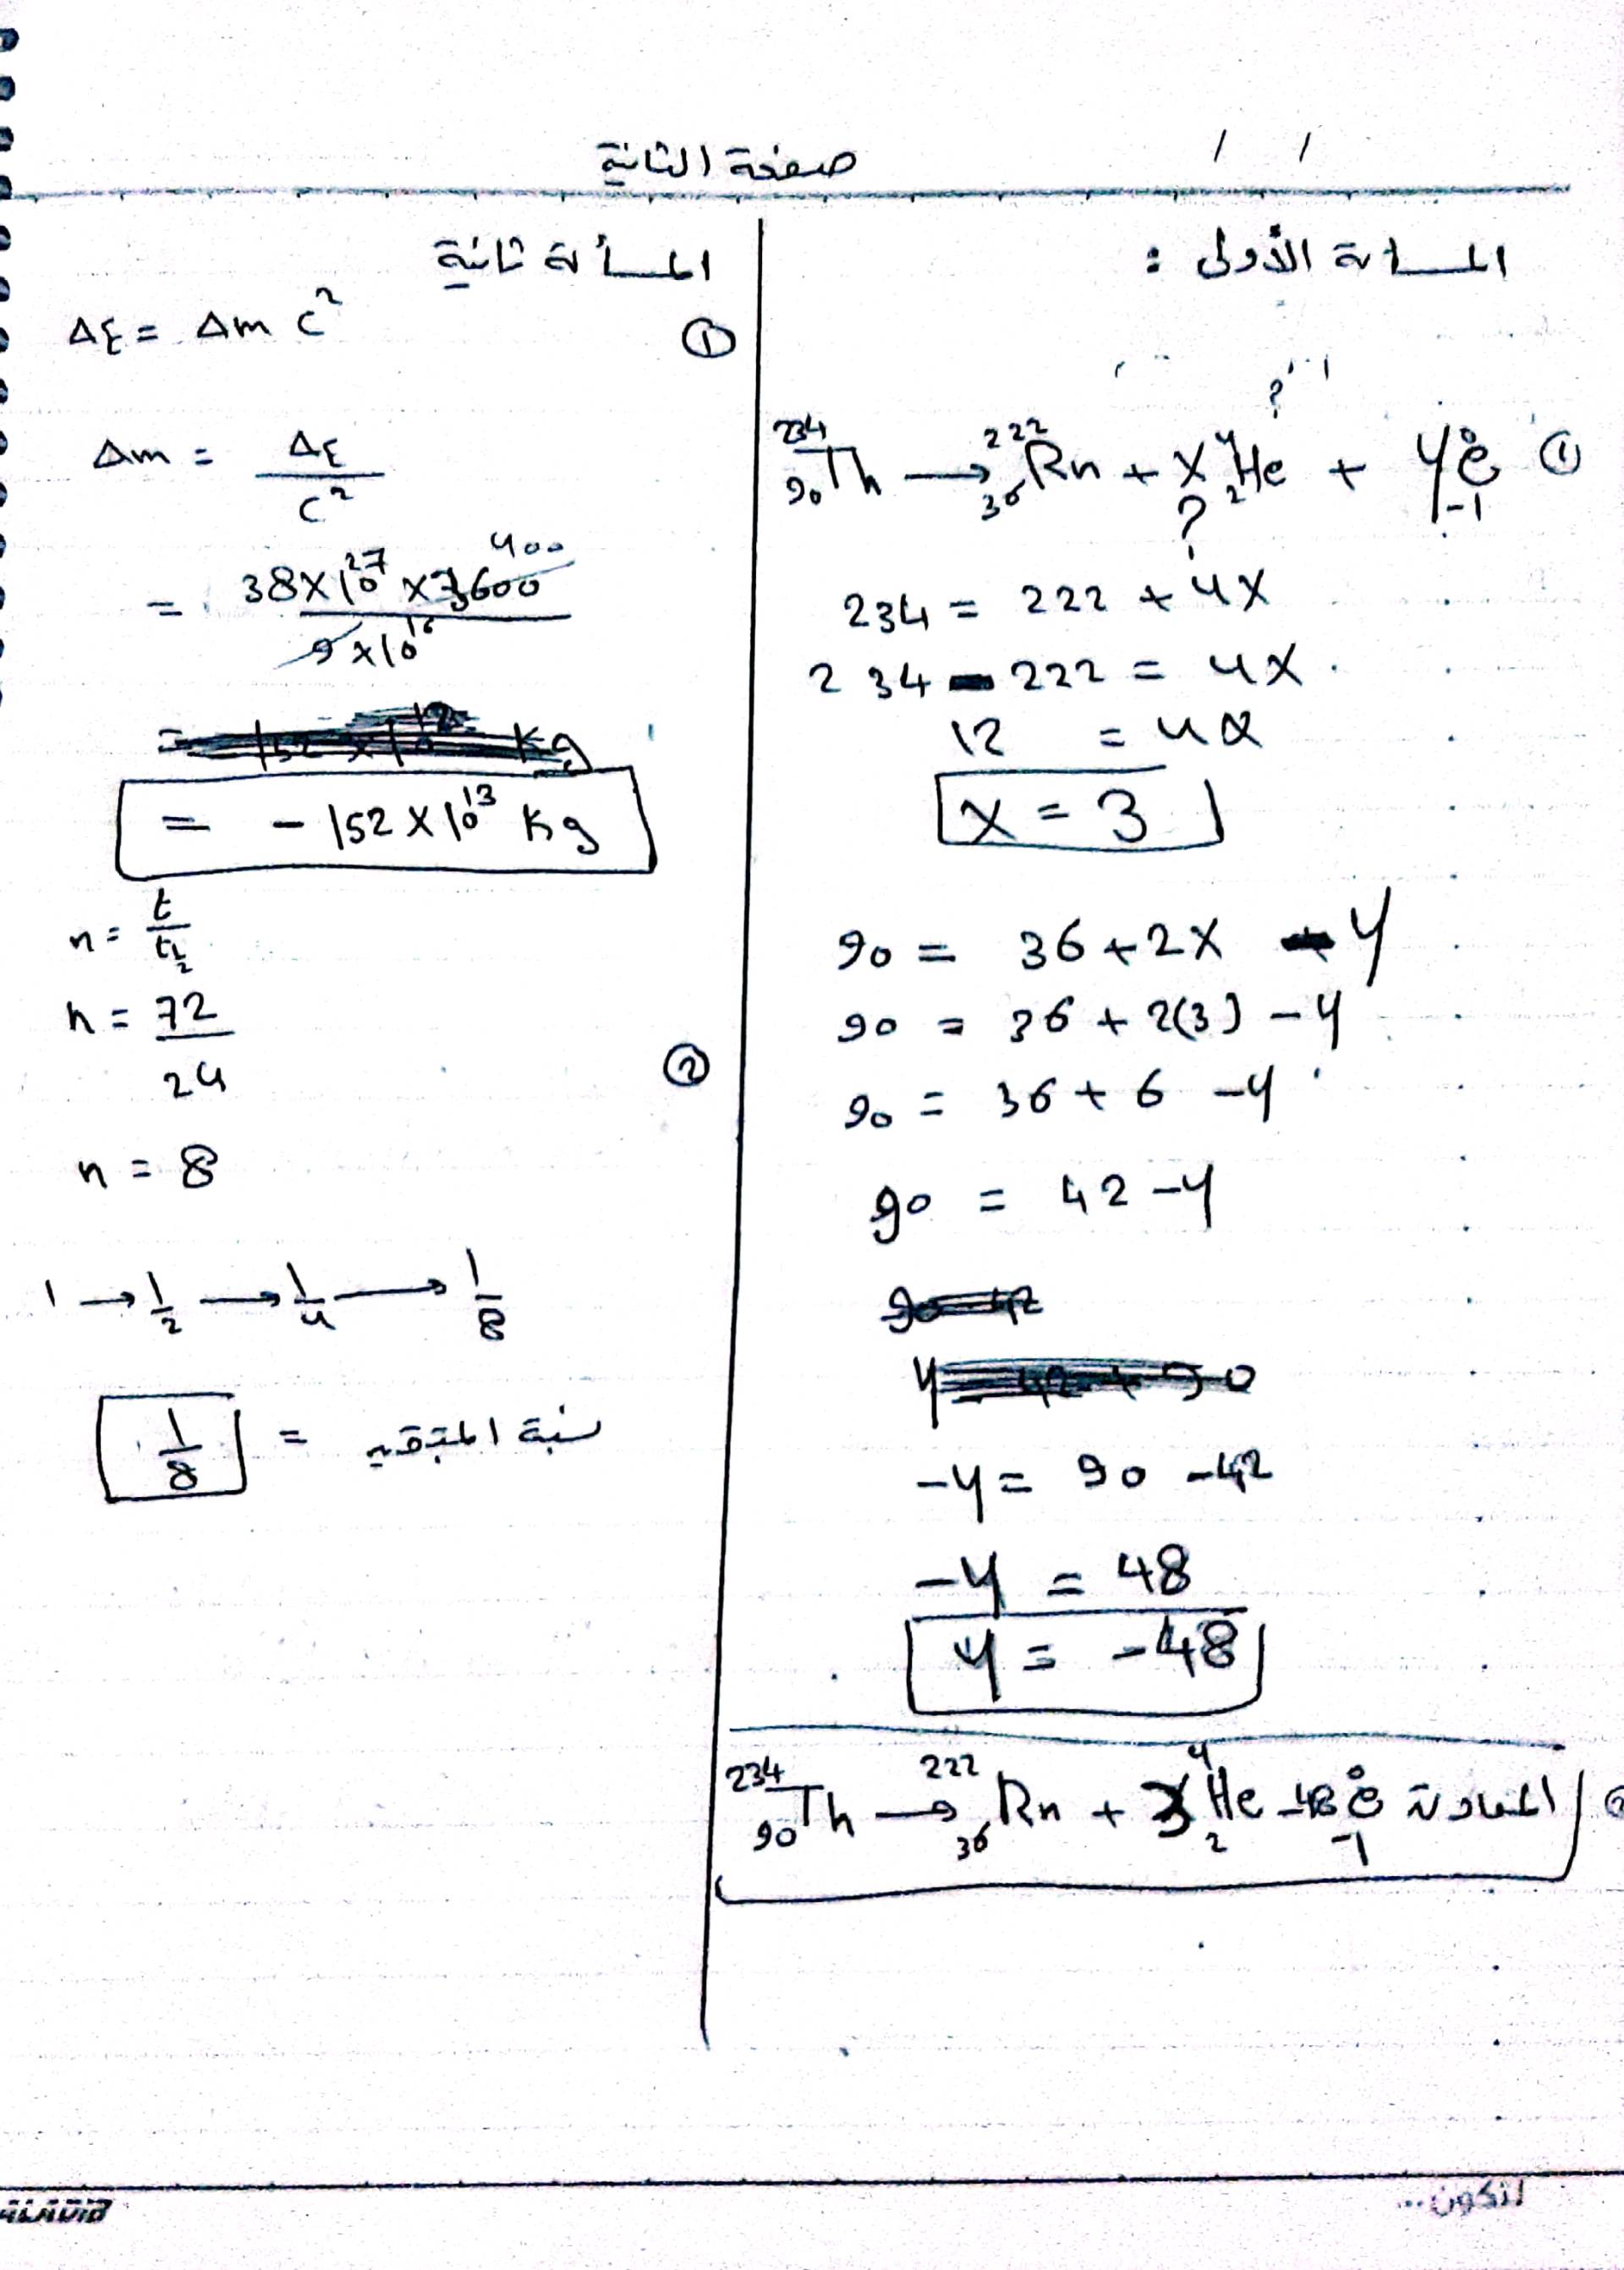 صفحة الثانية
/ /
المسألة الأولى :
① ²³⁴₉₀Th → ²²²₃₆Rn + X ⁴₂He + y ⁰₋₁e
? ?
234 = 222 + 4X
234 - 222 = 4X
12 = 4X
X = 3
90 = 36 + 2X - y
90 = 36 + 2(3) - y
90 = 36 + 6 - y
90 = 42 - y
-y = 90 - 42
-y = 48
y = -48
المعادلة ²³⁴₉₀Th → ²²²₃₆Rn + 3 ⁴₂He -48 ⁰₋₁e
المسألة ثانية
①
ΔE = Δm c²
Δm = ΔE / c²
= 38×10²⁷ × 3600 / 9×10¹⁶
400
= - 152 × 10¹³ Kg
②
n = t / t½
n = 72 / 24
n = 8
1 → 1/2 → 1/4 → 1/8
نسبة المتبقية = 1/8
لنكون...